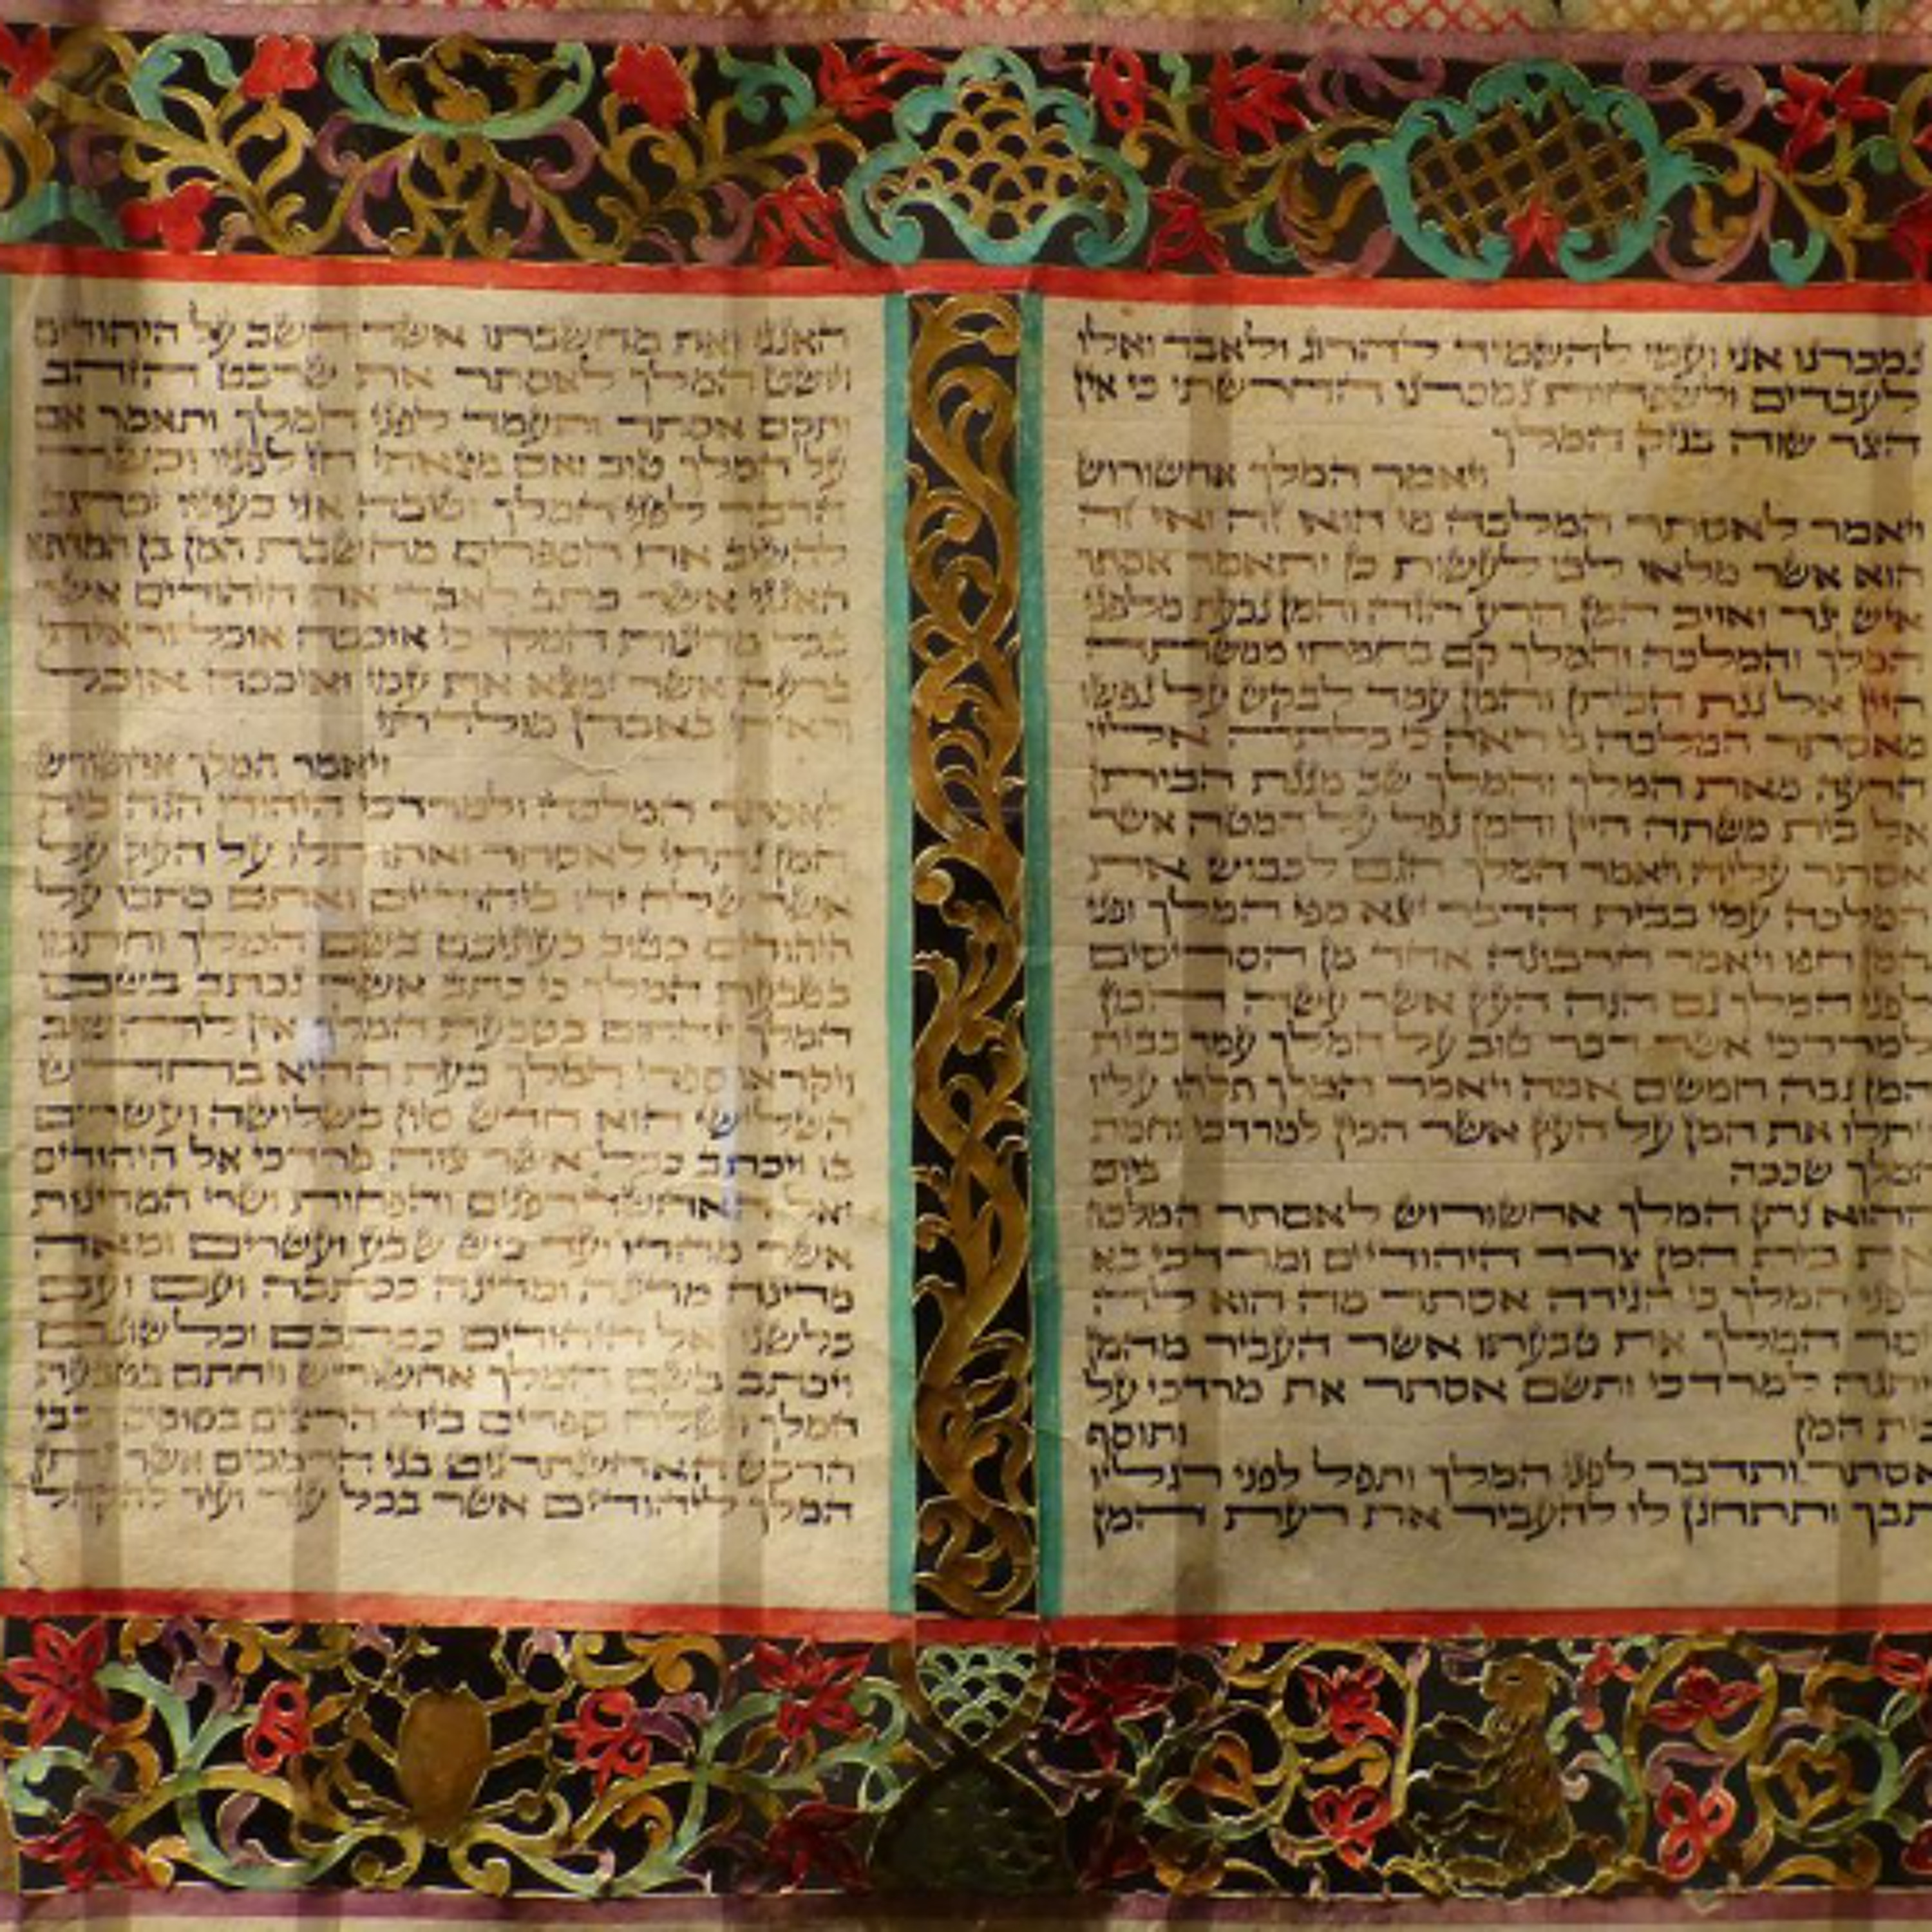 נמכרנו אני ועמי להשמיד להרוג ולאבד ואלו
לעבדים ולשפחות נמכרנו החרשתי כי אין
הצר שוה בנזק המלך
ויאמר המלך אחשורוש
ויאמר לאסתר המלכה מי הוא זה ואי זה
הוא אשר מלאו לבו לעשות כן ותאמר אסתר
איש צר ואויב המן הרע הזה והמן נבעת מלפני
המלך והמלכה והמלך קם בחמתו ממשתה
היין אל גנת הביתן והמן עמד לבקש על נפשו
מאסתר המלכה כי ראה כי כלתה אליו
הרעה מאת המלך והמלך שב מגנת הביתן
אל בית משתה היין והמן נפל על המטה אשר
אסתר עליה ויאמר המלך הגם לכבוש את
המלכה עמי בבית הדבר יצא מפי המלך ופני
המן חפו ויאמר חרבונה אחד מן הסריסים
לפני המלך גם הנה העץ אשר עשה המן
למרדכי אשר דבר טוב על המלך עמד בבית
המן גבה חמשים אמה ויאמר המלך תלהו עליו
ויתלו את המן על העץ אשר הכין למרדכי וחמת
המלך שככה ביום
ההוא נתן המלך אחשורוש לאסתר המלכה
את בית המן צרר היהודיים ומרדכי בא
לפני המלך כי הגידה אסתר מה הוא לה
ויסר המלך את טבעתו אשר העביר מהמן
ויתנה למרדכי ותשם אסתר את מרדכי על
בית המן ותוסף
אסתר ותדבר לפני המלך ותפל לפני רגליו
ותבך ותתחנן לו להעביר את רעת המן
האגגי ואת מחשבתו אשר חשב על היהודים
ויושט המלך לאסתר את שרבט הזהב
ותקם אסתר ותעמד לפני המלך ותאמר אם
על המלך טוב ואם מצאתי חן לפניו וכשר
הדבר לפני המלך וטובה אני בעיניו יכתב
להשיב את הספרים מחשבת המן בן המדתא
האגגי אשר כתב לאבד את היהודים אשר
בכל מדינות המלך כי איככה אוכל וראיתי
ברעה אשר ימצא את עמי ואיככה אוכל
וראיתי באבדן מולדתי
ויאמר המלך אחשורש
לאסתר המלכה ולמרדכי היהודי הנה בית
המן נתתי לאסתר ואתו תלו על העץ על
אשר שלח ידו ביהודיים ואתם כתבו על
היהודים כטוב בעיניכם בשם המלך וחתמו
בטבעת המלך כי כתב אשר נכתב בשם
המלך ונחתום בטבעת המלך אין להשיב
ויקראו ספרי המלך בעת ההיא בחדש
השלישי הוא חדש סיון בשלושה ועשרים
בו ויכתב ככל אשר צוה מרדכי אל היהודים
ואל האחשדרפנים והפחות ושרי המדינות
אשר מהדו ועד כוש שבע ועשרים ומאה
מדינה מדינה ומדינה ככתבה ועם ועם
כלשנו ואל היהודים ככתבם וכלשונם
ויכתב בשם המלך אחשורש ויחתם בטבעת
המלך וישלח ספרים ביד הרצים בסוסים רכבי
הרכש האחשתרנים בני הרמכים אשר נתן
המלך ליהודים אשר בכל עיר ועיר להקהל